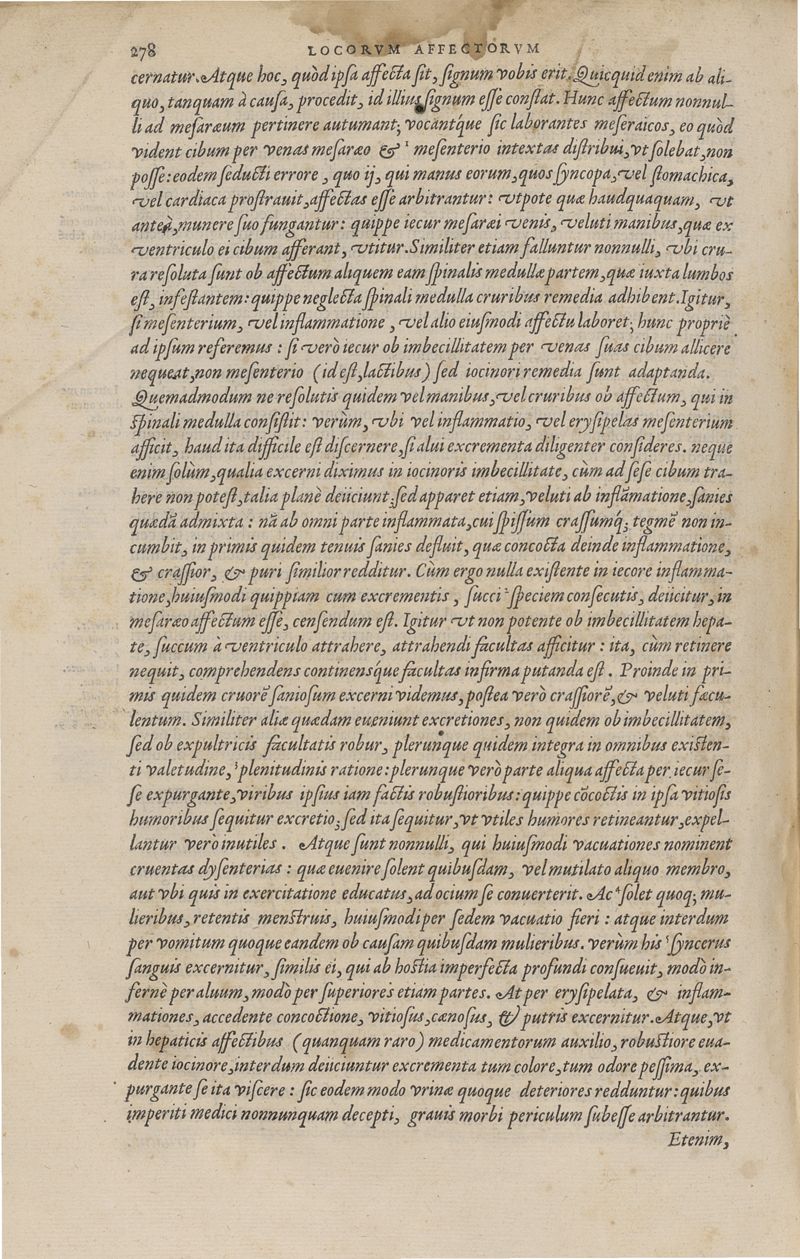 278 LOCORVM AFFECTORVM
cernatur. Atque hoc, quòd ipſa affecta ſit, ſignum vobis erit. Quicquid enim ab ali-
quo, tanquam à cauſa, procedit, id illius ſignum eſſe conſtat. Hunc affectum nonnul-
li ad meſaræum pertinere autumant; vocántque ſic laborantes meſeraicos, eo quòd
vident cibum per venas meſaræo & ¹ meſenterio intextas diſtribui, vt ſolebat, non
poſſe: eodem ſeducti errore, quo ij, qui manus eorum, quos ſyncopa, vel ſtomachica,
vel cardiaca proſtrauit, affectas eſſe arbitrantur: vtpote quæ haudquaquam, vt
anteà, munere ſuo fungantur: quippe iecur meſaræi venis, veluti manibus, quæ ex
ventriculo ei cibum afferant, vtitur. Similiter etiam falluntur nonnulli, vbi cru-
ra reſoluta ſunt ob affectum aliquem eam ſpinalis medullæ partem, quæ iuxta lumbos
eſt, infeſtantem: quippe neglecta ſpinali medulla cruribus remedia adhibent. Igitur,
ſi meſenterium, vel inflammatione, vel alio eiuſmodi affectu laboret; hunc propriè
ad ipſum referemus: ſi verò iecur ob imbecillitatem per venas ſuas cibum allicere
nequeat, non meſenterio (id eſt, lactibus) ſed iocinori remedia ſunt adaptanda.
Quemadmodum ne reſolutis quidem vel manibus, vel cruribus ob affectum, qui in
ſpinali medulla conſiſtit: verùm, vbi vel inflammatio, vel eryſipelas meſenterium
afficit, haud ita difficile eſt diſcernere, ſi alui excrementa diligenter conſideres. neque
enim ſolùm, qualia excerni diximus in iocinoris imbecillitate, cùm ad ſeſe cibum tra-
here non poteſt, talia planè deiiciunt; ſed apparet etiam, veluti ab inflãmatione, ſanies
quædã admixta: nã ab omni parte inflammata, cui ſpiſſum craſſumq́; tegmẽ non in-
cumbit, in primis quidem tenuis ſanies defluit, quæ concocta deinde inflammatione,
& craſſior, & puri ſimilior redditur. Cùm ergo nulla exiſtente in iecore inflamma-
tione, huiuſmodi quippiam cum excrementis, ſucci ² ſpeciem conſecutis, deiicitur, in
meſaræo affectum eſſe, cenſendum eſt. Igitur vt non potente ob imbecillitatem hepa-
te, ſuccum à ventriculo attrahere, attrahendi facultas afficitur: ita, cùm retinere
nequit, comprehendens continénsque facultas infirma putanda eſt. Proinde in pri-
mis quidem cruorẽ ſanioſum excerni videmus, poſtea verò craſſiorẽ, & veluti fæcu-
lentum. Similiter aliæ quædam eueniunt excretiones, non quidem ob imbecillitatem,
ſed ob expultricis facultatis robur, plerunque quidem integra in omnibus exiſten-
ti valetudine, ³ plenitudinis ratione: plerunque verò parte aliqua affecta per iecur ſe-
ſe expurgante, viribus ipſius iam factis robuſtioribus: quippe cõcoctis in ipſa vitioſis
humoribus ſequitur excretio; ſed ita ſequitur, vt vtiles humores retineantur, expel-
lantur verò inutiles. Atque ſunt nonnulli, qui huiuſmodi vacuationes nominent
cruentas dyſenterias: quæ euenire ſolent quibuſdam, vel mutilato aliquo membro,
aut vbi quis in exercitatione educatus, ad ocium ſe conuerterit. Ac ⁴ ſolet quoq; mu-
lieribus, retentis menſtruis, huiuſmodi per ſedem vacuatio fieri: atque interdum
per vomitum quoque eandem ob cauſam quibuſdam mulieribus. verùm his ⁵ ſyncerus
ſanguis excernitur, ſimilis ei, qui ab hoſtia imperfecta profundi conſueuit, modò in-
fernè per aluum, modò per ſuperiores etiam partes. At per eryſipelata, & inflam-
mationes, accedente concoctione, vitioſus, cænoſus, & putris excernitur. Atque, vt
in hepaticis affectibus (quanquam raro) medicamentorum auxilio, robuſtiore eua-
dente iocinore, interdum deiiciuntur excrementa tum colore, tum odore peſſima, ex-
purgante ſe ita viſcere: ſic eodem modo vrinæ quoque deteriores redduntur: quibus
imperiti medici nonnunquam decepti, grauis morbi periculum ſubeſſe arbitrantur.
Etenim,